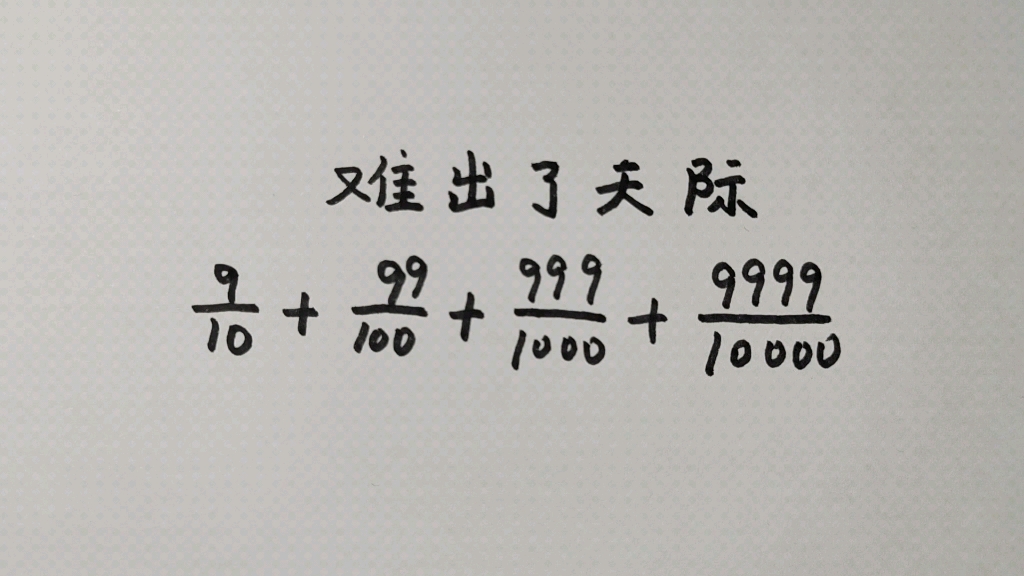 难出了天际
9/10 + 99/100 + 999/1000 + 9999/10000